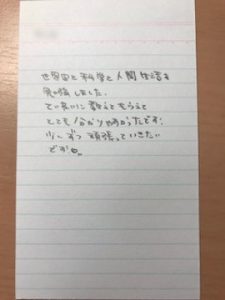 世界史と科学と人間生活を
勉強しました。
てい寧に教えてもらえて
とても分かり易かったです。
少しずつ頑張っていきたい
ですね。